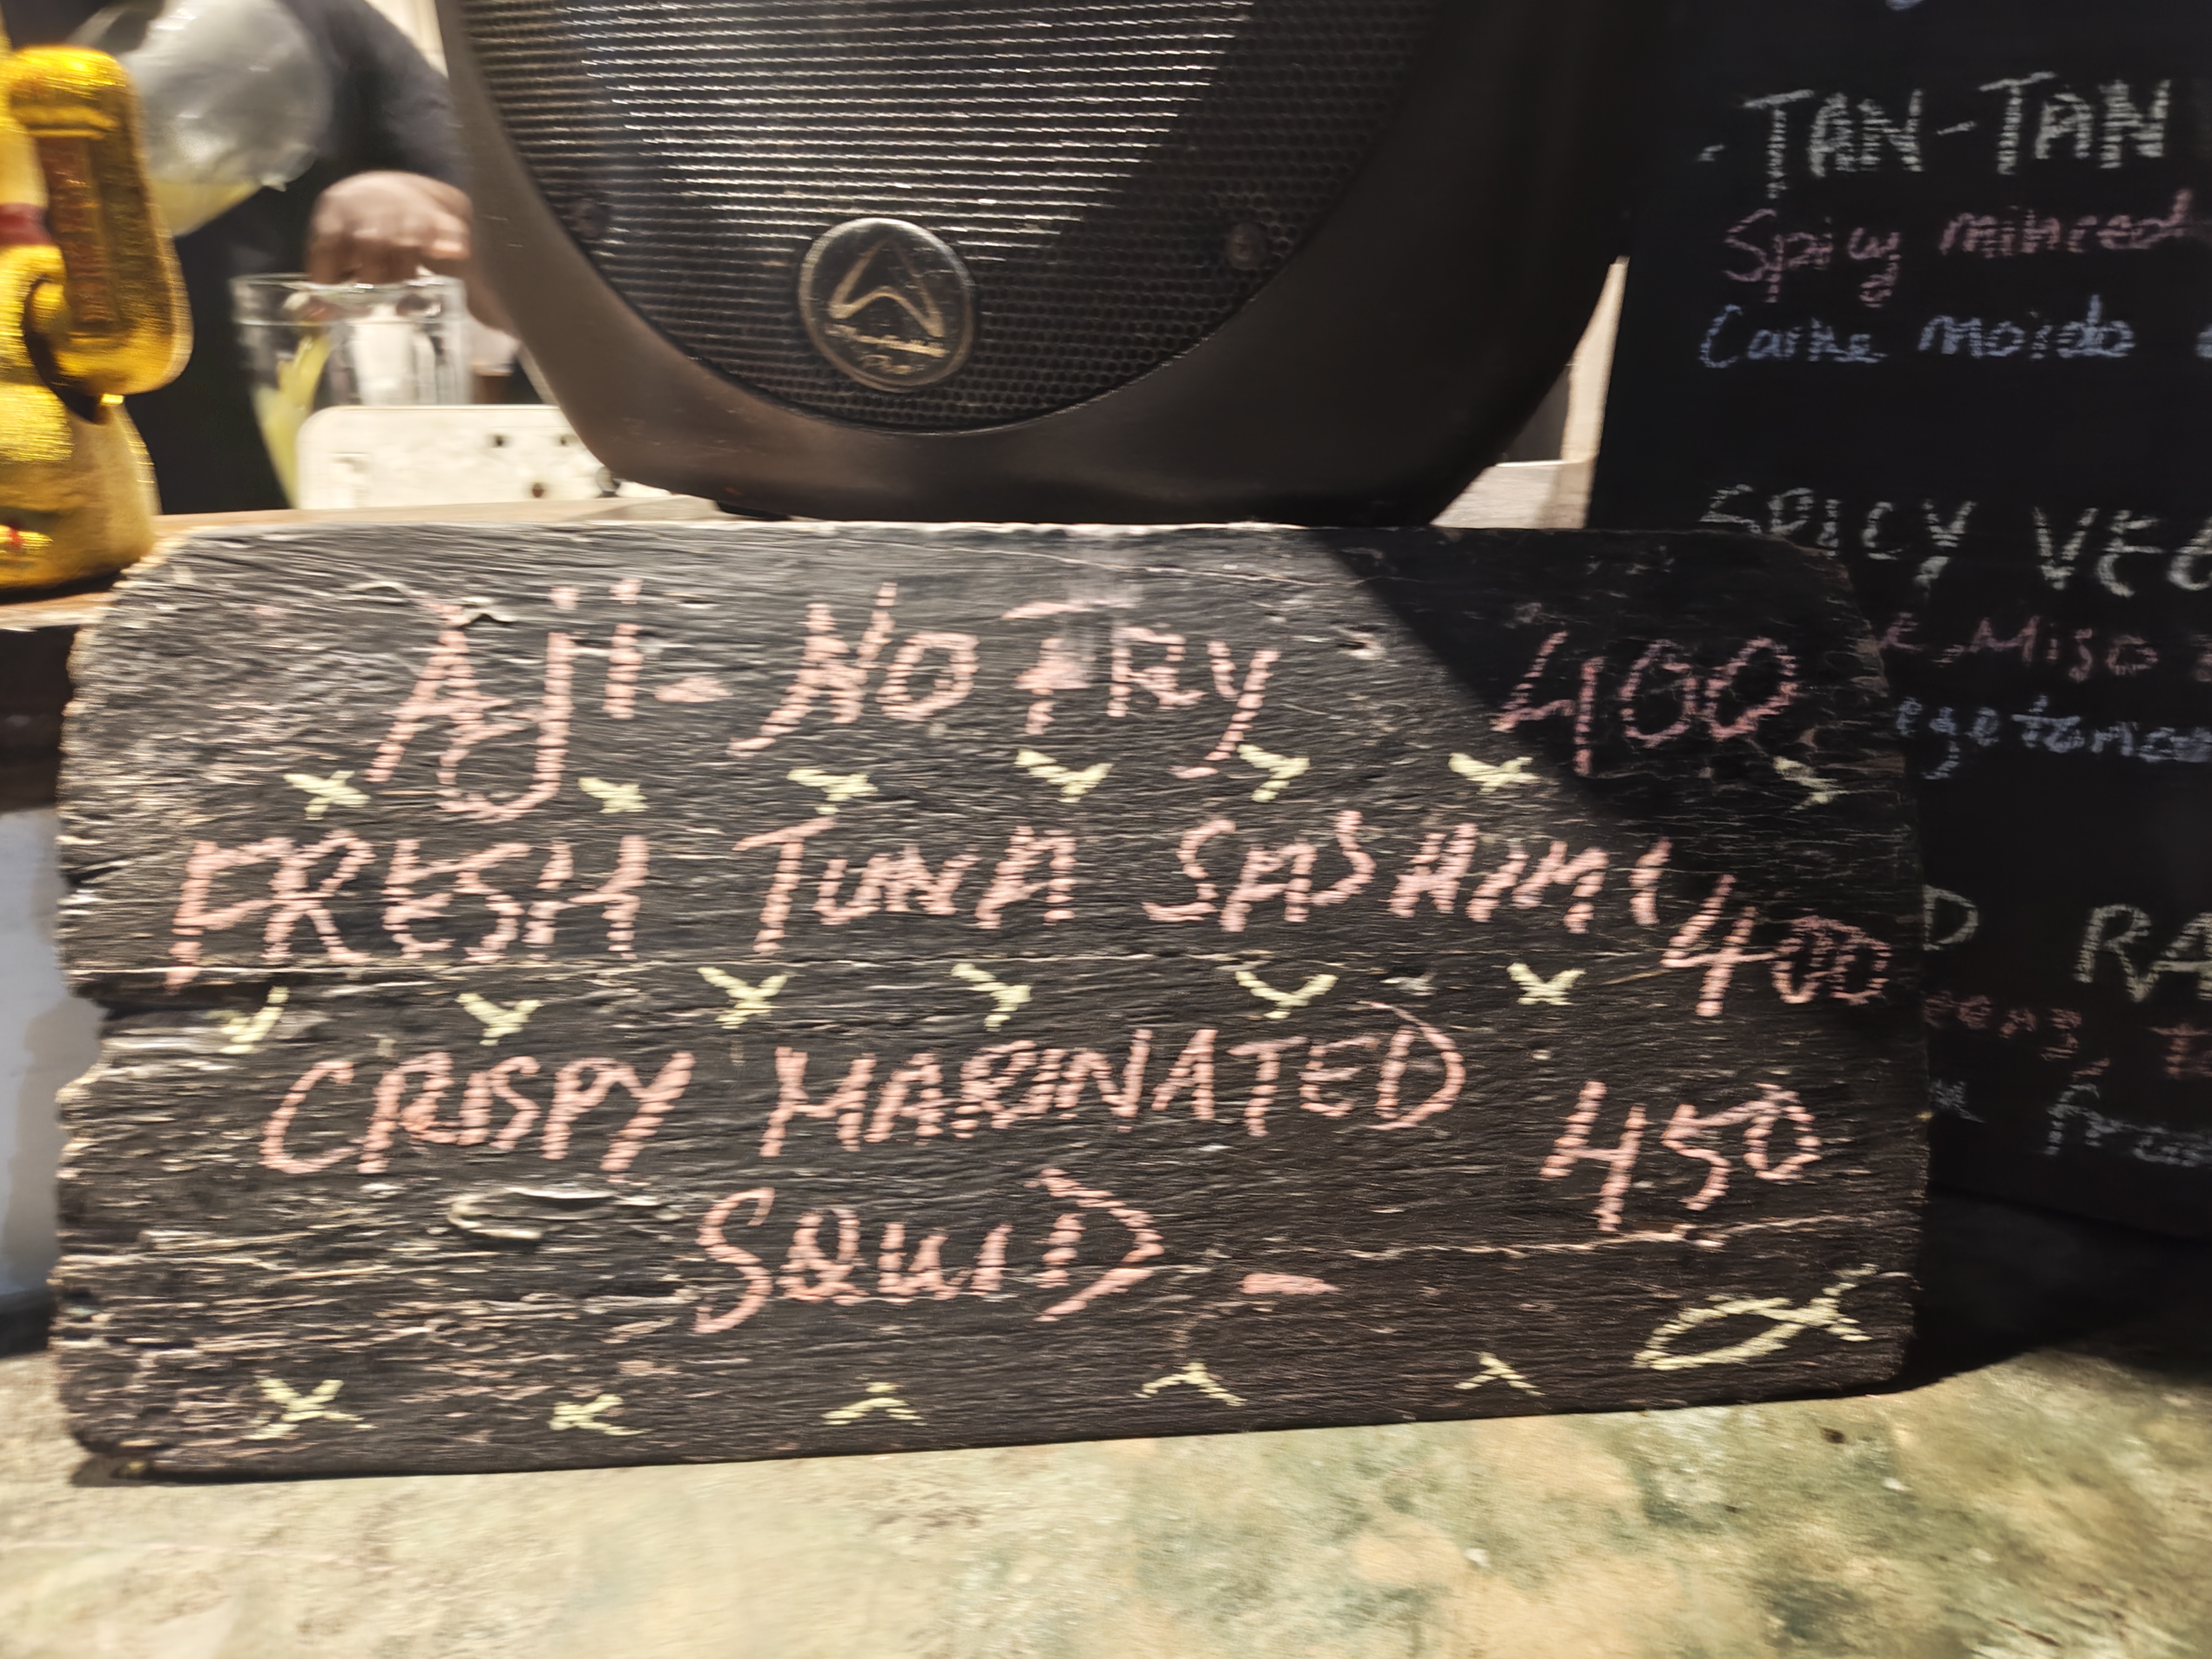 Aji-NO FRY 400
FRESH TUNA SASHIMI 400
CRISPY MARINATED 450
SQUID -
-TAN-TAN
Spicy minced
Carne moida
SPICY VEG
Miso
RA